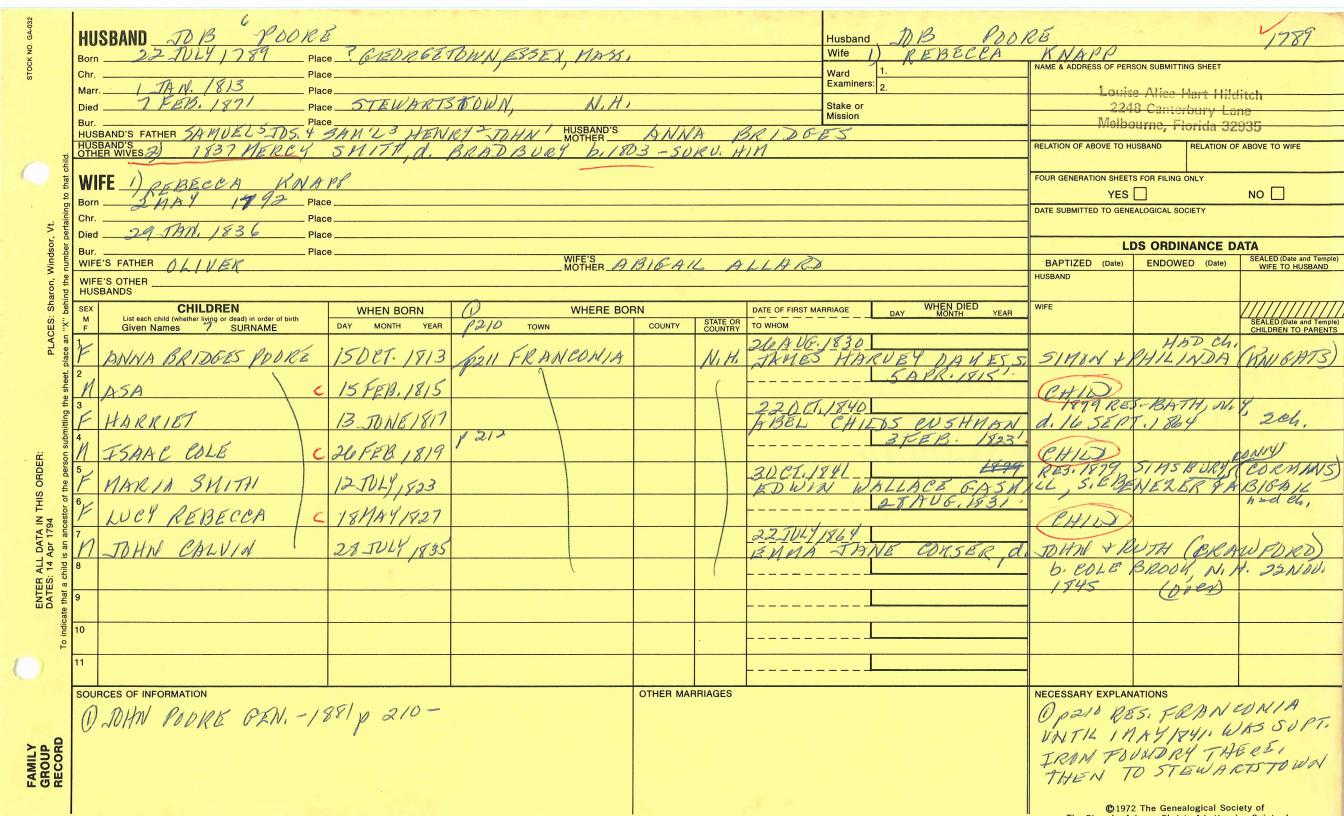 STOCK NO. GA-032
HUSBAND JOB 6 POORE
Born 22 JULY, 1789 Place ? GEORGETOWN, ESSEX, MASS.
Chr. Place
Marr. 1 JAN. 1813 Place
Died 7 FEB. 1871 Place STEWARTSTOWN, N.H.
Bur. Place
HUSBAND'S FATHER SAMUEL 5 JOS. 4 SAM'L 3 HENRY 2 JOHN 1 HUSBAND'S MOTHER ANNA BRIDGES
HUSBAND'S OTHER WIVES 2) 1837 MERCY SMITH, d. BRADBURY b. 1803 - SURV. HIM
WIFE 1) REBECCA KNAPP
Born 2 MAY 1792 Place
Chr. Place
Died 29 JAN. 1836 Place
Bur. Place
WIFE'S FATHER OLIVER WIFE'S MOTHER ABIGAIL ALLARD
WIFE'S OTHER HUSBANDS
Husband JOB POORE 1789
Wife 1) REBECCA KNAPP
Ward Examiners: 1.
2.
Stake or Mission
NAME & ADDRESS OF PERSON SUBMITTING SHEET
Louise Alice Hart Hilditch
2248 Canterbury Lane
Melbourne, Florida 32935
RELATION OF ABOVE TO HUSBAND RELATION OF ABOVE TO WIFE
FOUR GENERATION SHEETS FOR FILING ONLY
YES NO
DATE SUBMITTED TO GENEALOGICAL SOCIETY
LDS ORDINANCE DATA
BAPTIZED (Date) ENDOWED (Date) SEALED (Date and Temple) WIFE TO HUSBAND
HUSBAND
WIFE
SEALED (Date and Temple) CHILDREN TO PARENTS
SEX M F CHILDREN WHEN BORN WHERE BORN DATE OF FIRST MARRIAGE WHEN DIED
List each child (whether living or dead) in order of birth
Given Names 7 SURNAME DAY MONTH YEAR ① p210 TOWN COUNTY STATE OR COUNTRY TO WHOM DAY MONTH YEAR
1 F ANNA BRIDGES POORE 15 OCT. 1813 p211 FRANCONIA N.H. 26 AUG. 1830 HAD Ch.
JAMES HARVEY DAMES S. SIMON & PHILINDA (KNIGHTS)
2 M ASA C 15 FEB. 1815 5 APR. 1815 CHILD
3 F HARRIET 13 JUNE 1817 22 OCT. 1840 1879 RES-BATH, N.Y.
ABEL CHILDS CUSHMAN d. 16 SEPT. 1864 2ch.
4 M ISAAC COLE C 26 FEB, 1819 p 212 3 FEB. 1823 CHILD
5 F MARIA SMITH 12 JULY, 1823 3 OCT. 1841 1879 RES. 1879 SIMSBURY, CONN (CORMANS)
EDWIN WALLACE GASKILL, S. EBENEZER & ABIGAIL had ch.
6 F LUCY REBECCA C 18 MAY 1827 28 AUG. 1831 CHILD
7 M JOHN CALVIN 28 JULY 1835 22 JULY 1864
EMMA JANE CORSER, d. JOHN & RUTH (CRAWFORD)
8 b. COLE BROOK, N.H. 22 NOV.
9 1845 (over)
10
11
SOURCES OF INFORMATION OTHER MARRIAGES NECESSARY EXPLANATIONS
① JOHN POORE GEN. - 1881 p 210 -
① p210 RES. FRANCONIA
UNTIL 1 MAY 1841. WAS SUPT.
IRON FOUNDRY THERE,
THEN TO STEWARTSTOWN
©1972 The Genealogical Society of
PLACES: Sharon, Windsor, Vt.
To indicate that a child is an ancestor of the person submitting the sheet, place an "X" behind the number pertaining to that child.
ENTER ALL DATA IN THIS ORDER:
DATES: 14 Apr 1794
FAMILY GROUP RECORD